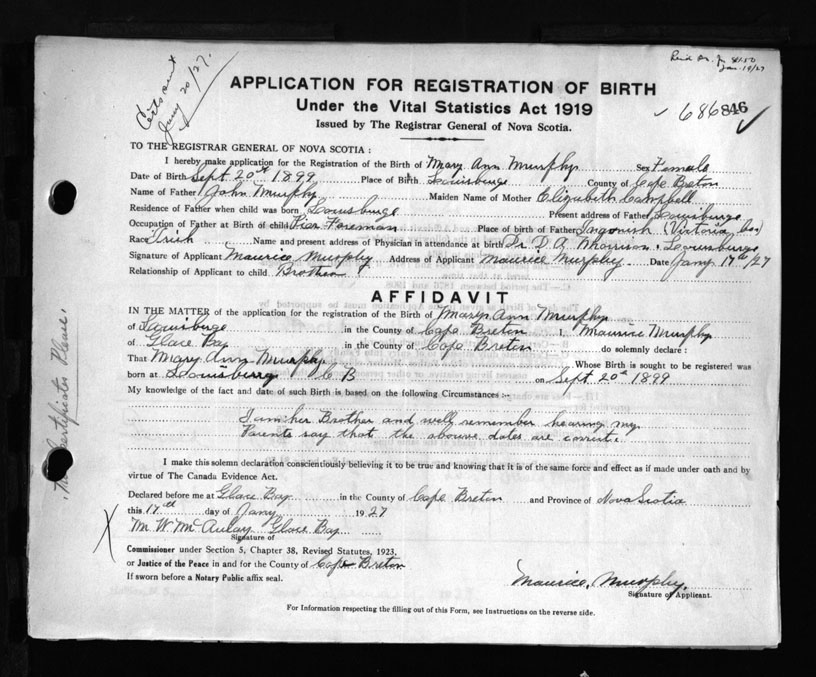 Certs sent
Jany 20/27.
Jan. 19/27
APPLICATION FOR REGISTRATION OF BIRTH
Under the Vital Statistics Act 1919
Issued by The Registrar General of Nova Scotia.
686846
TO THE REGISTRAR GENERAL OF NOVA SCOTIA :
I hereby make application for the Registration of the Birth of Mary Ann Murphy Sex Female
Date of Birth Sept 20th 1899 Place of Birth Louisburge County of Cape Breton
Name of Father John Murphy Maiden Name of Mother Elizabeth Campbell
Residence of Father when child was born Louisburge Present address of Father Louisburge
Occupation of Father at Birth of child Pier Foreman Place of birth of Father Ingonish (Victoria Co)
Race Irish Name and present address of Physician in attendance at birth Dr. D. A. Morrison, Louisburge
Signature of Applicant Maurice Murphy Address of Applicant Maurice Murphy Date Jany 17th/27
Relationship of Applicant to child Brother
AFFIDAVIT
IN THE MATTER of the application for the registration of the Birth of Mary Ann Murphy
of Louisburge in the County of Cape Breton I, Maurice Murphy
of Glace Bay in the County of Cape Breton do solemnly declare :
That Mary Ann Murphy Whose Birth is sought to be registered was
born at Louisburge C B on Sept 20th 1899
My knowledge of the fact and date of such Birth is based on the following Circumstances :-
I am her Brother and well remember hearing my
Parents say that the abouve dates are
I make this solemn declaration conscientiously believing it to be true and knowing that it is of the same force and effect as if made under oath and by
virtue of The Canada Evidence Act.
Declared before me at Glace Bay in the County of Cape Breton and Province of Nova Scotia
this 17th day of Jany 1927
M. W. McAulay Glace Bay
Signature of
Commissioner under Section 5, Chapter 38, Revised Statutes, 1923.
or Justice of the Peace in and for the County of Cape Breton
If sworn before a Notary Public affix seal.
Maurice Murphy.
Signature of Applicant.
For Information respecting the filling out of this Form, see Instructions on the reverse side.
Certificates Please.